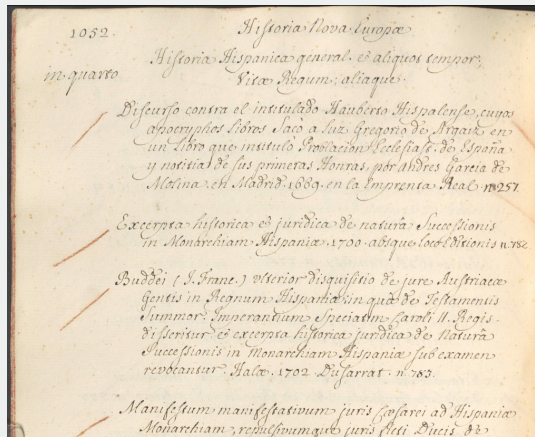 1052.
Historia Nova Europæ
Historia Hispanica general. et aliquot tempor:
in quarto
Vitæ Regum; aliaque.
Discurso contra el intitulado Hauberto Hispalense, cuyos
apocryphos Libros Sacò a Luz Gregorio de Argaix en
un Libro que intitulo Poblacion Ecclesiast. de España
y notitia de sus primeras Honras, por Andres Garcia de
Molina. en Madrid. 1689. en la Emprenta Real. nº 257.
Excerpta historica et juridica de naturâ Successionis
in Monarchiam Hispaniæ. 1700. absque Loco Editionis n. 782
Buddei (J. Franc.) ulterior disquisitio de jure Austriacæ
Gentis in Regnum Hispaniæ; in quâ de Testamentis
Summor. Imperantium Speciatim Caroli II. Regis.
disseritur et excerpta historica juridica de Naturâ
Successionis in Monarchiam Hispaniæ sub examen
revocantur. Halæ. 1702. Dusarrat. n. 783.
Manifestum manifestativum juris Cæsarei ad Hispaniæ
Monarchiam, repulsivumque juris ficti Ducis de